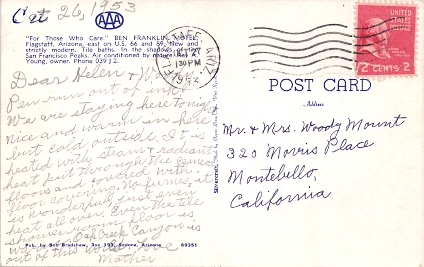 Oct 26, 1953
AAA
"For Those Who Care." BEN FRANKLIN MOTEL
Flagstaff, Arizona, east on U.S. 66 and 89. New and
strictly modern. Tile baths. In the shadows of the
San Francisco Peaks. Air conditioned by nature.
Young, owner. Phone 039 J 2.
Dear Helen &
Pen run out of ink.
We are staying here tonight
nice and warm in here
but cold outside. It is
heated with steam & radiant
heat sent through the cement
floors and covered with
floor covering. No fumes, it
is wonderful just even
heat all over. Even the tile
shower room floor is
warm. Oak Creek Canyon is
out of this world. Love
Mother
Pub. by Bob Bradshaw, Box 195, Sedona, Arizona
69351
130 PM
UNITED STATES
POSTAGE
2 CENTS 2
POST CARD
Address
Mr. & Mrs. Woody Mount
320 Morris Place
Montebello,
California